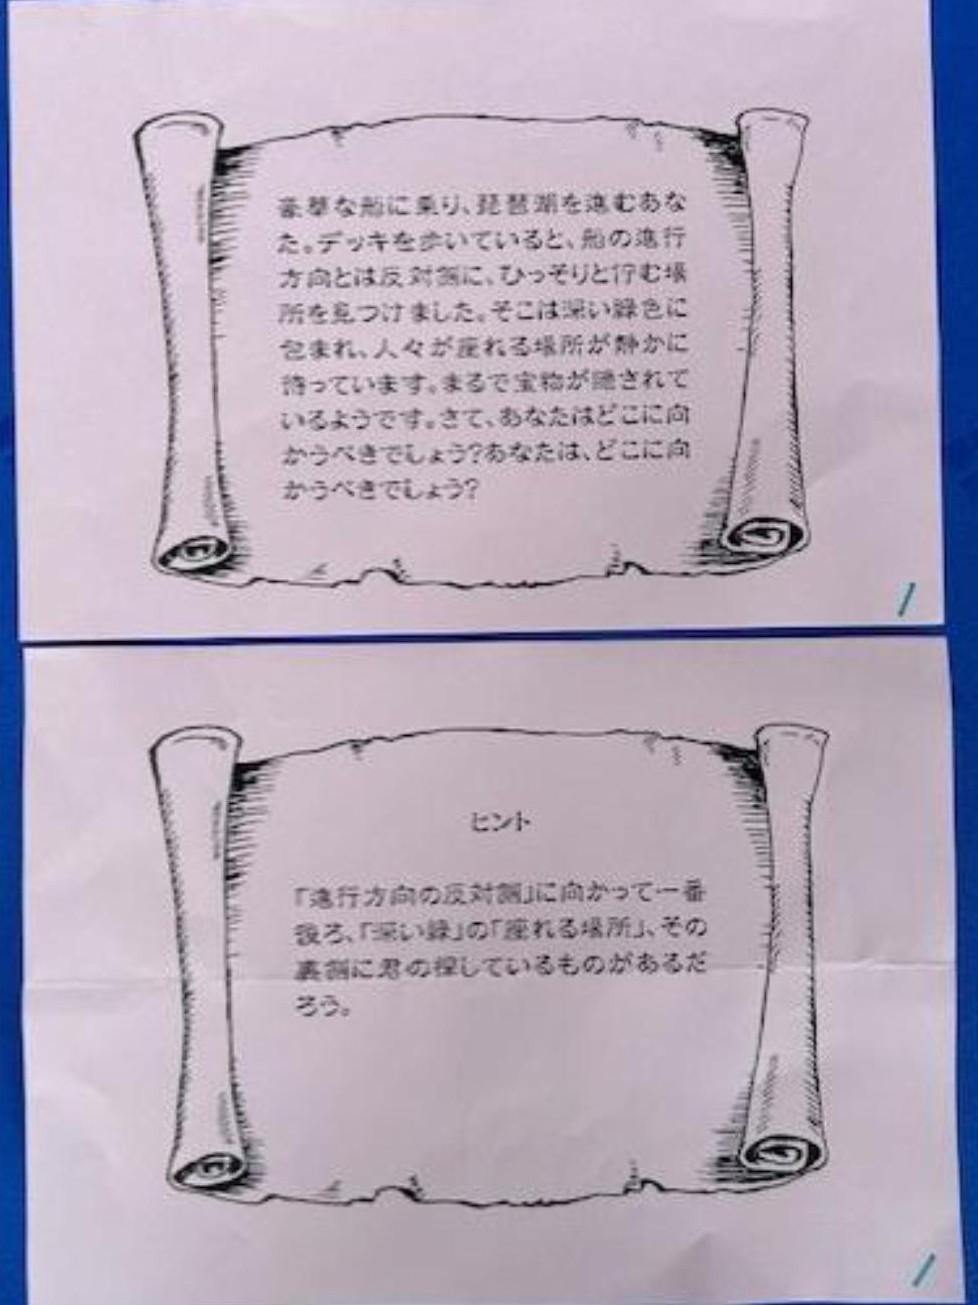 豪華な船に乗り、琵琶湖を進むあな
た。デッキを歩いていると、船の進行
方向とは反対側に、ひっそりと佇む場
所を見つけました。そこは深い緑色に
包まれ、人々が座れる場所が静かに
待っています。まるで宝物が隠されて
いるようです。さて、あなたはどこに向
かうべきでしょう?あなたは、どこに向
かうべきでしょう?
1
ヒント
「進行方向の反対側」に向かって一番
後ろ、「深い緑」の「座れる場所」、その
裏側に君の探しているものがあるだ
ろう。
1